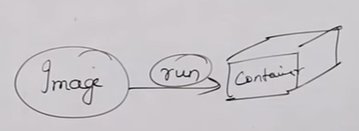 Image
run
Container